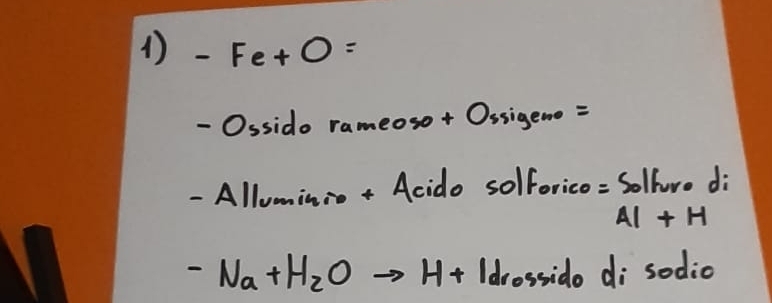 1) - Fe + O =
- Ossido rameoso + Ossigeno =
- Alluminio + Acido solforico = Solfuro di
Al + H
- Na + H₂O → H + Idrossido di sodio